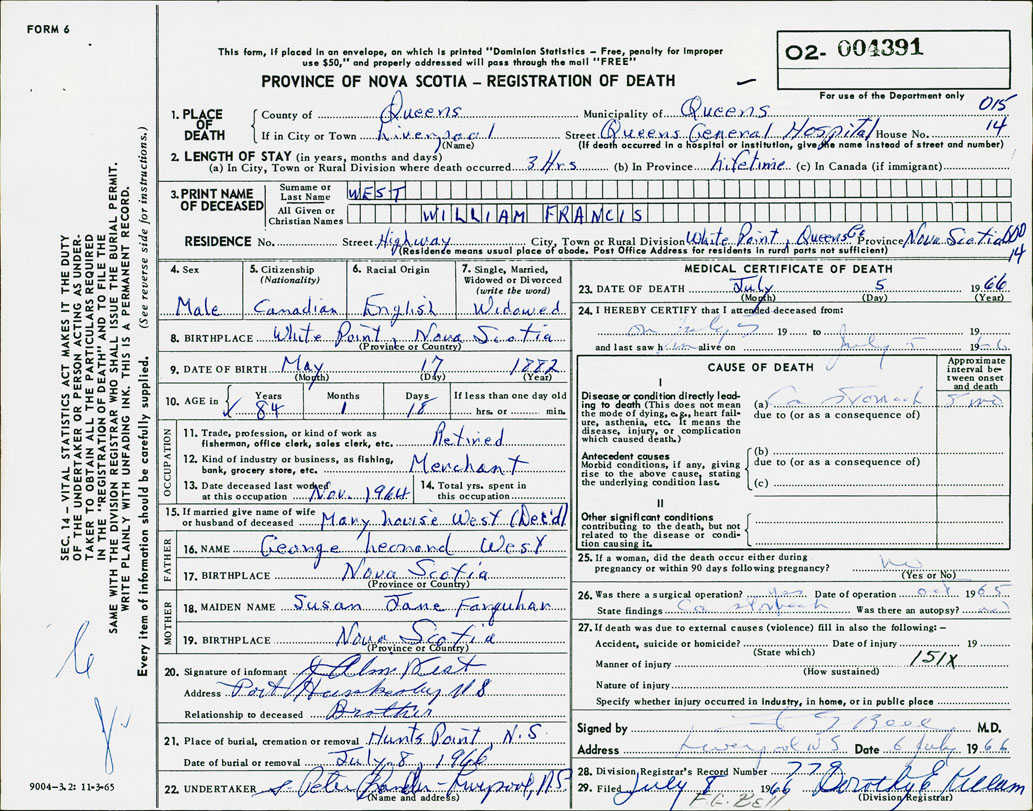 FORM 6
This form, if placed in an envelope, on which is printed "Dominion Statistics – Free, penalty for improper
use $50," and properly addressed will pass through the mail "FREE"
PROVINCE OF NOVA SCOTIA – REGISTRATION OF DEATH
02- 004391
For use of the Department only
1. PLACE OF DEATH
County of Queens Municipality of Queens 015
If in City or Town Liverpool Street Queens General Hospital House No. 14
(Name) (If death occurred in a hospital or institution, give the name instead of street and number)
2. LENGTH OF STAY (in years, months and days)
(a) In City, Town or Rural Division where death occurred 3 Hrs (b) In Province Lifetime (c) In Canada (if immigrant)
3. PRINT NAME OF DECEASED
Surname or Last Name WEST
All Given or Christian Names WILLIAM FRANCIS
RESIDENCE No. Street Highway City, Town or Rural Division White Point, Queens Co Province Nova Scotia
(Residence means usual place of abode. Post Office Address for residents in rural parts not sufficient) 14
4. Sex Male
5. Citizenship (Nationality) Canadian
6. Racial Origin English
7. Single, Married, Widowed or Divorced (write the word) Widowed
8. BIRTHPLACE White Point, Nova Scotia
(Province or Country)
9. DATE OF BIRTH May 17 1882
(Month) (Day) (Year)
10. AGE in Years 84 Months 1 Days 18 If less than one day old hrs. or min.
OCCUPATION
11. Trade, profession, or kind of work as fisherman, office clerk, sales clerk, etc. Retired
12. Kind of industry or business, as fishing, bank, grocery store, etc. Merchant
13. Date deceased last worked at this occupation Nov. 1964
14. Total yrs. spent in this occupation
15. If married give name of wife or husband of deceased Mary Louise West (Dec'd)
FATHER
16. NAME George Leonard West
17. BIRTHPLACE Nova Scotia
(Province or Country)
MOTHER
18. MAIDEN NAME Susan Jane Farquhar
19. BIRTHPLACE Nova Scotia
(Province or Country)
20. Signature of informant West
Address Port N S
Relationship to deceased Brother
21. Place of burial, cremation or removal Hunts Point, N.S.
Date of burial or removal July 8, 1966
22. UNDERTAKER Peter N.S.
(Name and address)
MEDICAL CERTIFICATE OF DEATH
23. DATE OF DEATH July 5 1966
(Month) (Day) (Year)
24. I HEREBY CERTIFY that I attended deceased from:
on July 5 19 to July 5 19
and last saw him alive on 1966
CAUSE OF DEATH
Approximate interval between onset and death
I
Disease or condition directly leading to death (This does not mean the mode of dying, e.g., heart failure, asthenia, etc. It means the disease, injury, or complication which caused death.)
(a) Ca Stomach
due to (or as a consequence of)
Antecedent causes
Morbid conditions, if any, giving rise to the above cause, stating the underlying condition last.
(b)
due to (or as a consequence of)
(c)
II
Other significant conditions
contributing to the death, but not related to the disease or condition causing it.
25. If a woman, did the death occur either during pregnancy or within 90 days following pregnancy? no
(Yes or No)
26. Was there a surgical operation? yes Date of operation Oct 1965
State findings Ca stomach Was there an autopsy?
27. If death was due to external causes (violence) fill in also the following: –
Accident, suicide or homicide? Date of injury 19
(State which)
Manner of injury 151X
(How sustained)
Nature of injury
Specify whether injury occurred in industry, in home, or in public place
Signed by M.D.
Address Liverpool N S Date 6 July 1966
28. Division Registrar's Record Number 779
29. Filed July 8 1966 Dorothy E Killam
(Division Registrar)
F.G. BELL
SEC. 14 – VITAL STATISTICS ACT MAKES IT THE DUTY
OF THE UNDERTAKER OR PERSON ACTING AS UNDER-
TAKER TO OBTAIN ALL THE PARTICULARS REQUIRED
IN THE "REGISTRATION OF DEATH" AND TO FILE THE
SAME WITH THE DIVISION REGISTRAR WHO SHALL ISSUE THE BURIAL PERMIT.
WRITE PLAINLY WITH UNFADING INK. THIS IS A PERMANENT RECORD.
Every item of information should be carefully supplied. (See reverse side for instructions.)
9004-3.2: 11-3-65